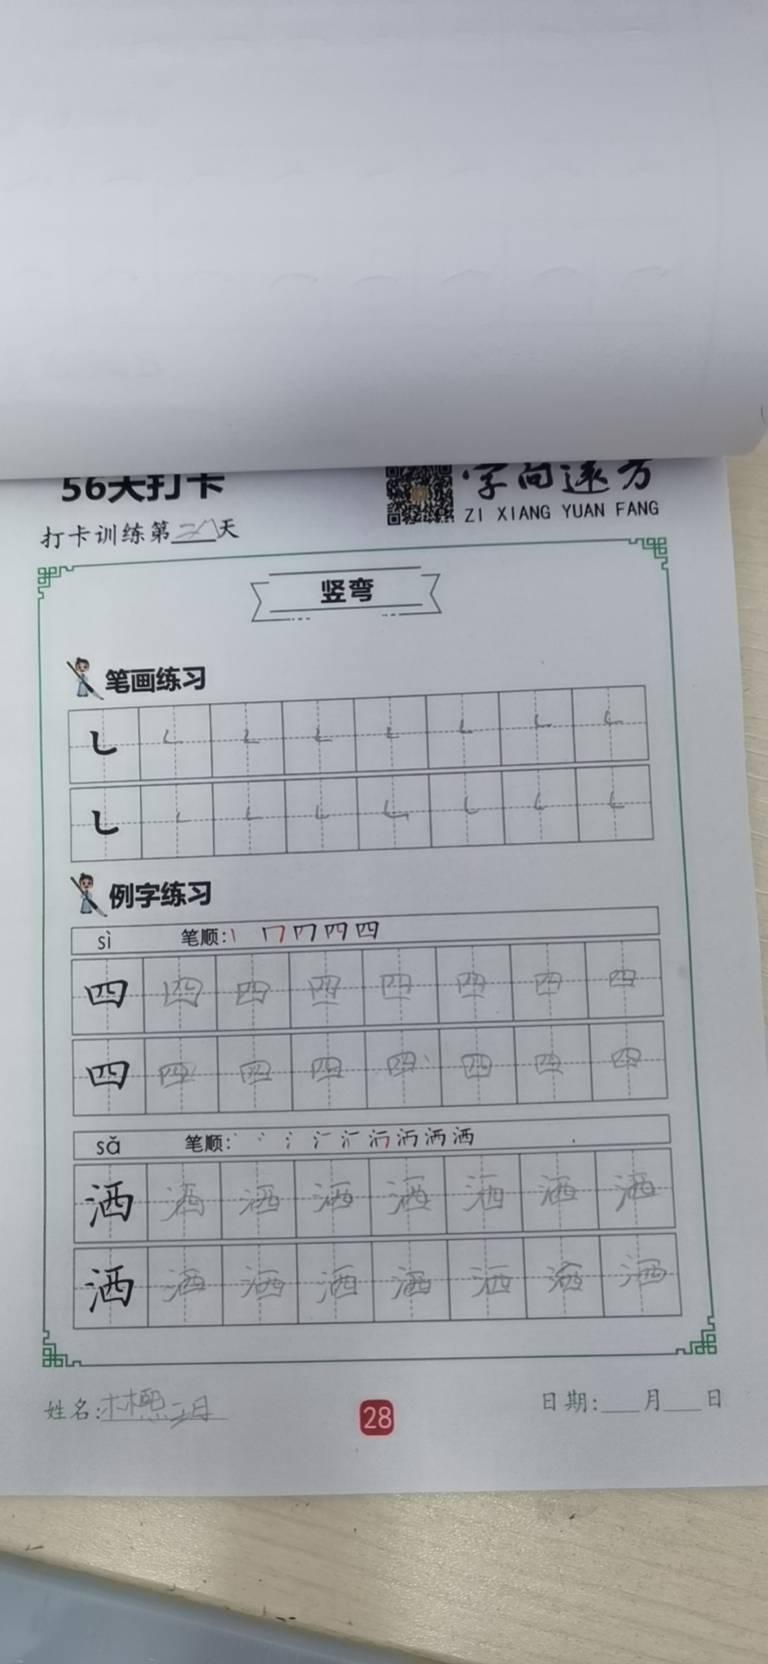 56天打卡
字向远方
ZI XIANG YUAN FANG
打卡训练第二八天
竖弯
笔画练习
例字练习
sì 笔顺:
四 四 四 四 四 四 四 四
四 四 四 四 四 四 四 四
sǎ 笔顺:
洒 洒 洒 洒 洒 洒 洒 洒
洒 洒 洒 洒 洒 洒 洒 洒
姓名:林熙
28
日期:___月___日